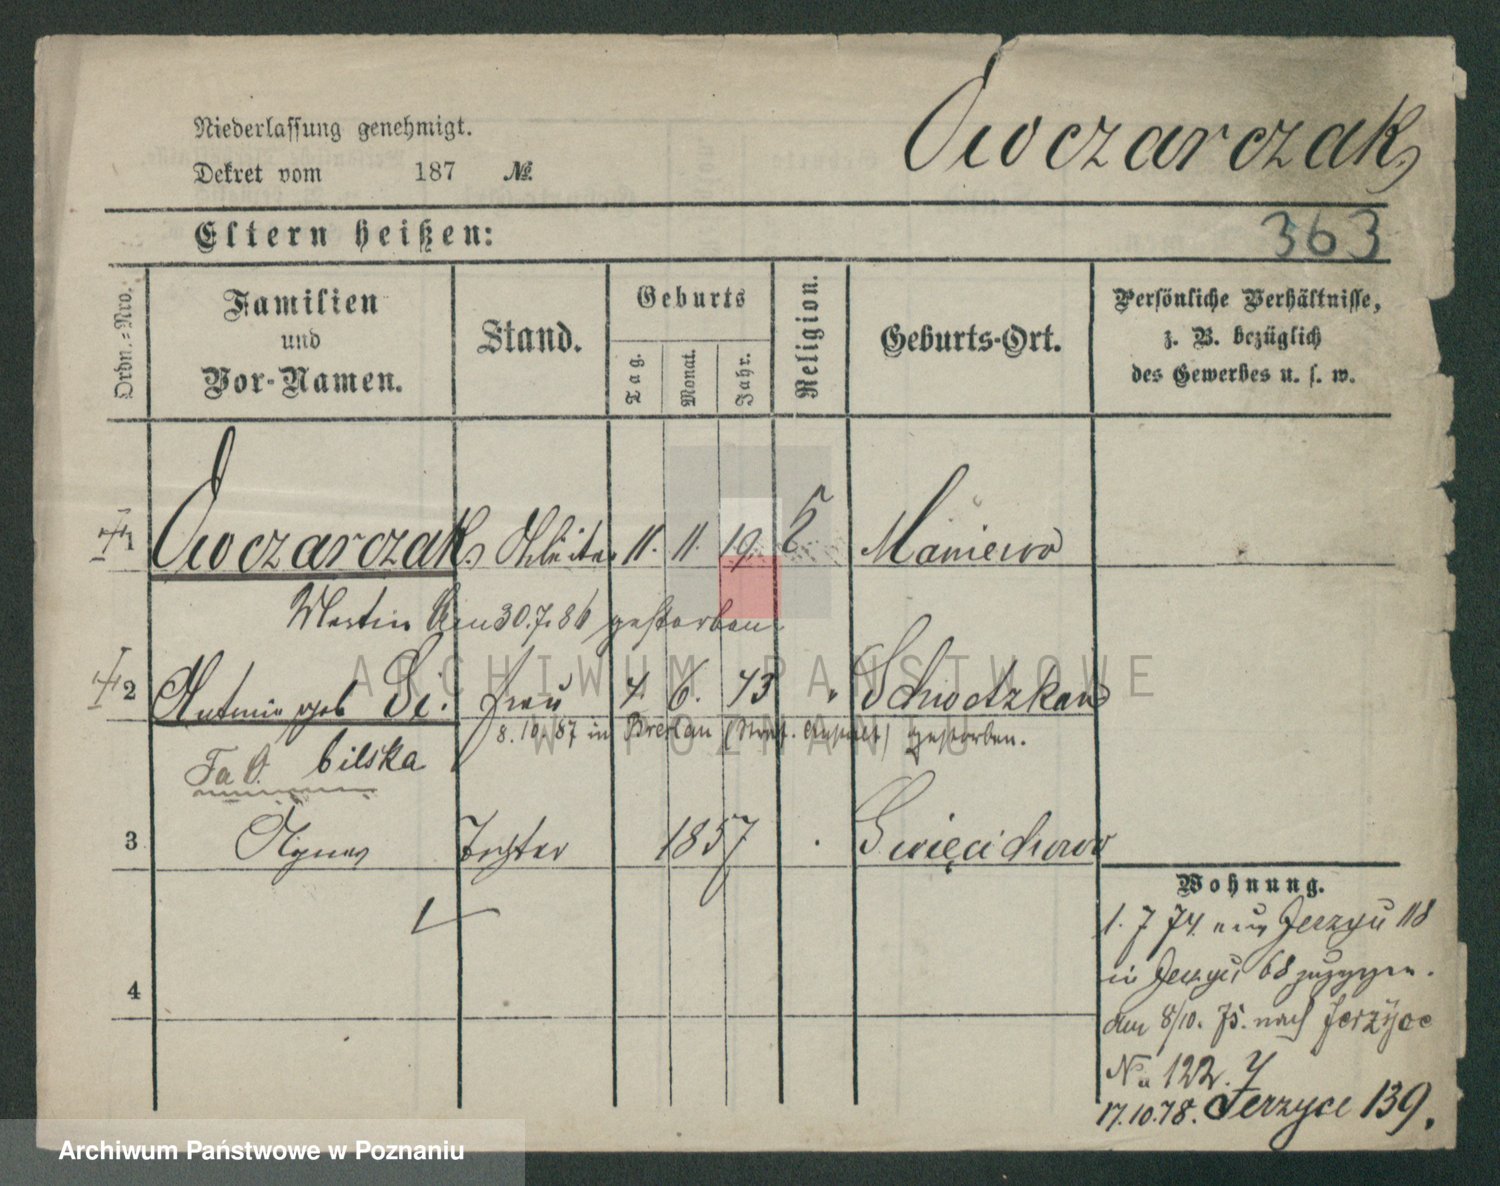 Owczarczak
Niederlassung genehmigt.
Dekret vom 187 №
Eltern heißen:
363
Ordn.=Nro.
Familien
und
Vor-Namen.
Stand.
Geburts
Tag. Monat. Jahr.
Religion.
Geburts-Ort.
Persönliche Verhältnisse,
z. B. bezüglich
des Gewerbes u. s. w.
1 Owczarczak 11. 11. 19. Maniewo
Martin 30.7.86 gestorben
2 Antonie geb Si. Frau 7. 6. 73 "
8.10.87 in Breslau gestorben.
bilska
3 Agnes Tochter 1857 Święcichowo
4
Wohnung.
1. 7 74. aus Jerzyce 118
in Jerzyce 68 zugezogen.
am 8/10. 75. nach Jerzyce
No 122.
17.10.78. Jerzyce 139.
ARCHIWUM PAŃSTWOWE
W POZNANIU
Archiwum Państwowe w Poznaniu